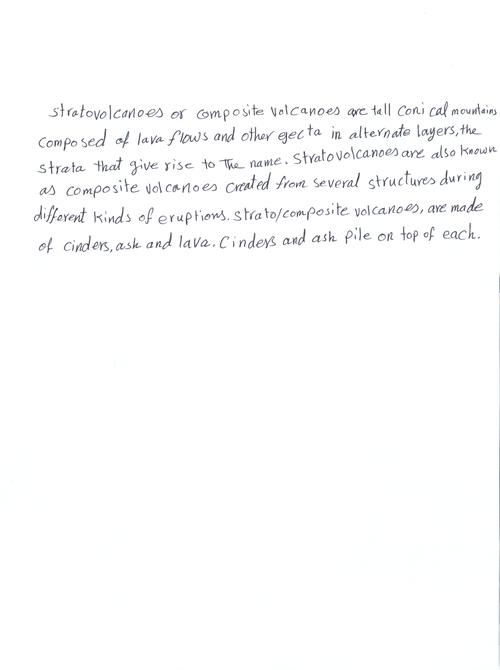 Stratovolcanoes or composite volcanoes are tall conical mountains
composed of lava flows and other ejecta in alternate layers, the
strata that give rise to the name. Stratovolcanoes are also known
as composite volcanoes created from several structures during
different kinds of eruptions. strato/composite volcanoes, are made
of cinders, ash and lava. Cinders and ash pile on top of each.